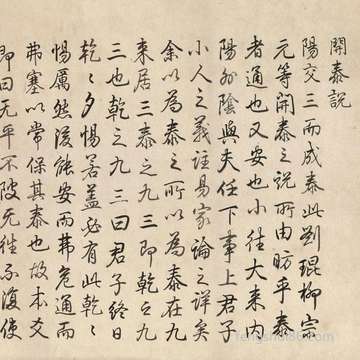 開泰說
陽交三而成泰此劉琨柳宗
元等開泰之說所由昉乎泰
者通也又安也小往大來內
陽外陰與夫任下事上君子
小人之義註易家論之詳矣
余以為泰之所以為泰在九
三也乾之九三曰君子終日
乾乾夕惕若蓋必有此乾乾
惕厲然後能安而弗危通而
弗塞以常保其泰也故本爻
即曰无平不陂无往不復使